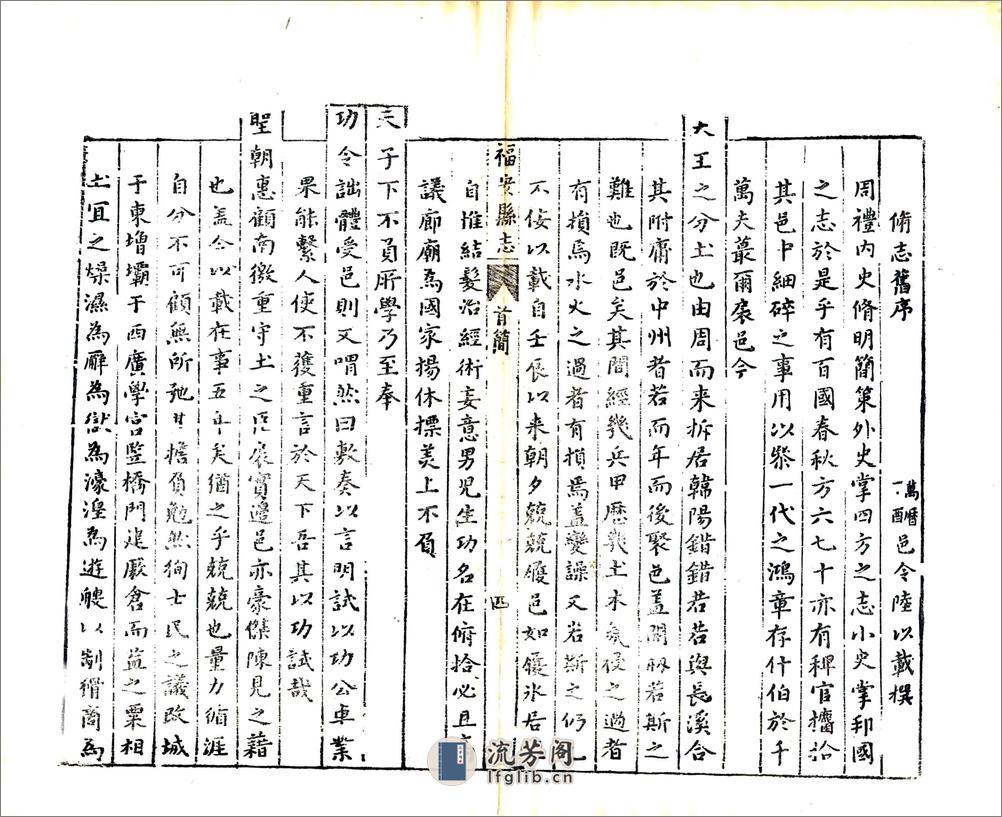 脩志舊序
萬曆丁酉邑令陸以載撰
周禮內史脩明簡策外史掌四方之志小史掌邦國
之志於是乎有百國春秋方六七十亦有稗官擅治
其邑中細碎之事用以祭一代之鴻章存什伯於千
萬夫蕞爾扆邑今
大王之分土也由周而来拆居韓陽錯錯若若與長溪合
其附庸於中州者若而年而後聚邑盖閞刱若斯之
難也既邑矣其間經幾兵甲歷幾土木氛祲之過者
有損焉水火之過者有損焉盖變譟又若斯之仍
不佞以載自壬辰以来朝夕兢兢履邑如履氷居
福安縣志
首簡
四
自惟結髮治經術妄意男児生功名在俯拾必且
議廊廟為國家揚休摽美上不負
天子下不負所學乃至奉
功令詘體受邑則又喟然曰敷奏以言明試以功公車業
果能繫人使不獲重言於天下吾其以功試哉
聖朝惠顧南徼重守土之臣扆實邊邑亦豪傑陳見之藉
也盖令以載在事五年矣猶之乎兢兢也量力循涯
自分不可顧無所弛其擔負勉然徇士民之議改城
于東増壩于西廣學宮竪橋門建厫倉而益之粟相
土宜之燥濕為廨為嶽為濠湟為遊艘以制猾商為
流芳阁
lfglib.cn